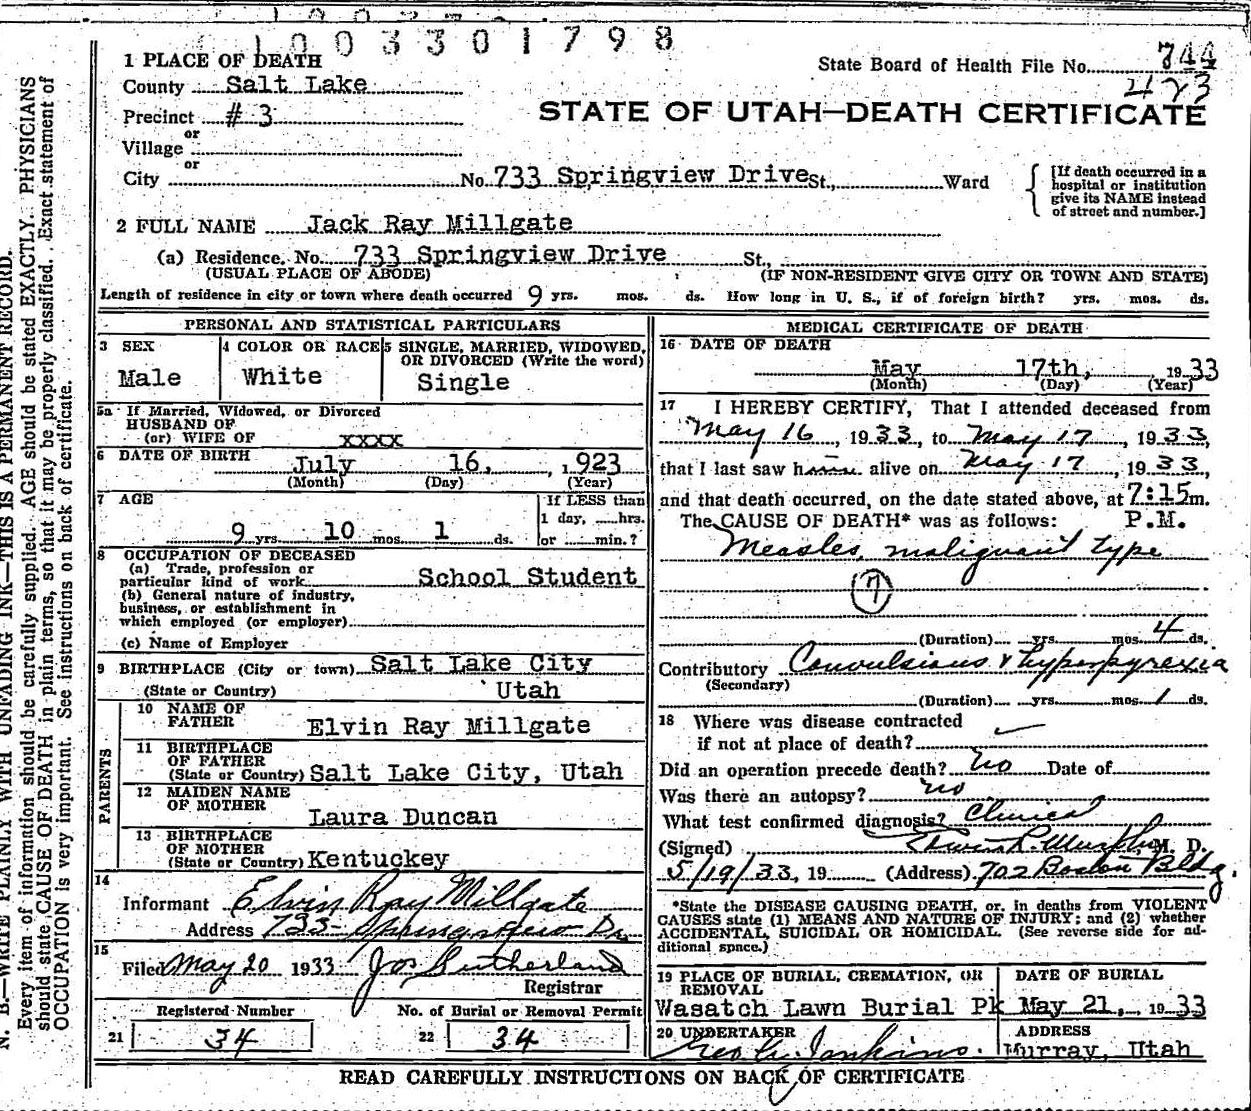 1003301798
1 PLACE OF DEATH
County Salt Lake
State Board of Health File No. 744
423
Precinct # 3
or
Village
or
STATE OF UTAH—DEATH CERTIFICATE
City No. 733 Springview Drive St., Ward
[If death occurred in a
hospital or institution
give its NAME instead
of street and number.]
2 FULL NAME Jack Ray Millgate
(a) Residence, No. 733 Springview Drive St.,
(USUAL PLACE OF ABODE) (IF NON-RESIDENT GIVE CITY OR TOWN AND STATE)
Length of residence in city or town where death occurred 9 yrs. mos. ds. How long in U. S., if of foreign birth? yrs. mos. ds.
PERSONAL AND STATISTICAL PARTICULARS
3 SEX
Male
4 COLOR OR RACE
White
5 SINGLE, MARRIED, WIDOWED,
OR DIVORCED (Write the word)
Single
5a If Married, Widowed, or Divorced
HUSBAND OF
(or) WIFE OF xxxx
6 DATE OF BIRTH
July 16, 1923
(Month) (Day) (Year)
7 AGE
9 yrs. 10 mos. 1 ds.
If LESS than
1 day, hrs.
or min.?
8 OCCUPATION OF DECEASED
(a) Trade, profession or
particular kind of work School Student
(b) General nature of industry,
business, or establishment in
which employed (or employer)
(c) Name of Employer
9 BIRTHPLACE (City or town) Salt Lake City
(State or Country) Utah
PARENTS
10 NAME OF
FATHER Elvin Ray Millgate
11 BIRTHPLACE
OF FATHER
(State or Country) Salt Lake City, Utah
12 MAIDEN NAME
OF MOTHER
Laura Duncan
13 BIRTHPLACE
OF MOTHER
(State or Country) Kentuckey
14
Informant Elvin Ray Millgate
Address 733 Springview Dr.
15
Filed May 20 1933 Jos Sutherland
Registrar
Registered Number
21 34
No. of Burial or Removal Permit
22 34
MEDICAL CERTIFICATE OF DEATH
16 DATE OF DEATH
May 17th, 1933
(Month) (Day) (Year)
17 I HEREBY CERTIFY, That I attended deceased from
May 16, 1933, to May 17, 1933,
that I last saw him alive on May 17, 1933,
and that death occurred, on the date stated above, at 7:15m.
The CAUSE OF DEATH* was as follows: P.M.
Measles, malignant type
7
(Duration) yrs. mos. 4 ds.
Contributory Convulsions & hyperpyrexia
(Secondary)
(Duration) yrs. mos. 1 ds.
18 Where was disease contracted
if not at place of death?
Did an operation precede death? no Date of
Was there an autopsy? no
What test confirmed diagnosis? Clinical
(Signed) Murphy M. D.
5/19/33, 19 (Address) 702 Boston Bldg.
*State the DISEASE CAUSING DEATH, or, in deaths from VIOLENT
CAUSES state (1) MEANS AND NATURE OF INJURY; and (2) whether
ACCIDENTAL, SUICIDAL OR HOMICIDAL. (See reverse side for ad-
ditional space.)
19 PLACE OF BURIAL, CREMATION, OR
REMOVAL
Wasatch Lawn Burial Pk
DATE OF BURIAL
May 21, 1933
20 UNDERTAKER
Jenkins.
ADDRESS
Murray, Utah
READ CAREFULLY INSTRUCTIONS ON BACK OF CERTIFICATE
N. B.—WRITE PLAINLY WITH UNFADING INK—THIS IS A PERMANENT RECORD.
Every item of information should be carefully supplied. AGE should be stated EXACTLY. PHYSICIANS
should state CAUSE OF DEATH in plain terms, so that it may be properly classified. Exact statement of
OCCUPATION is very important. See instructions on back of certificate.